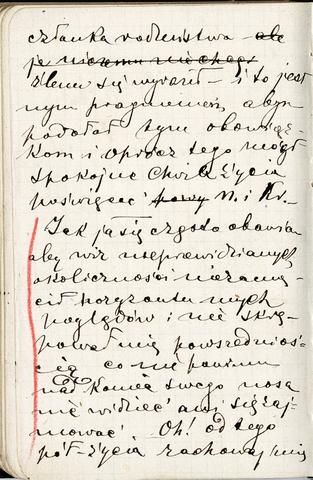 członka rodzeństwa ale
ja niczemu nie chcę
złem się wyraził – i to jest
mym pragnieniem, abym
podołał tym obowiąz-
kom i oprócz tego mógł
spokojne chwile życia
poświęcać N. i Kr. –
Jak ja się często obawiam
aby wir nieprzewidzianych
okoliczności nie zamą-
cił horyzontu mych
poglądów i nie skrę-
pował mię powszednioś-
cią co nie powinna
nad koniec swego nosa
nie widzieć ani się zaj-
mować Oh! od tego
pół-życia zachowaj mię